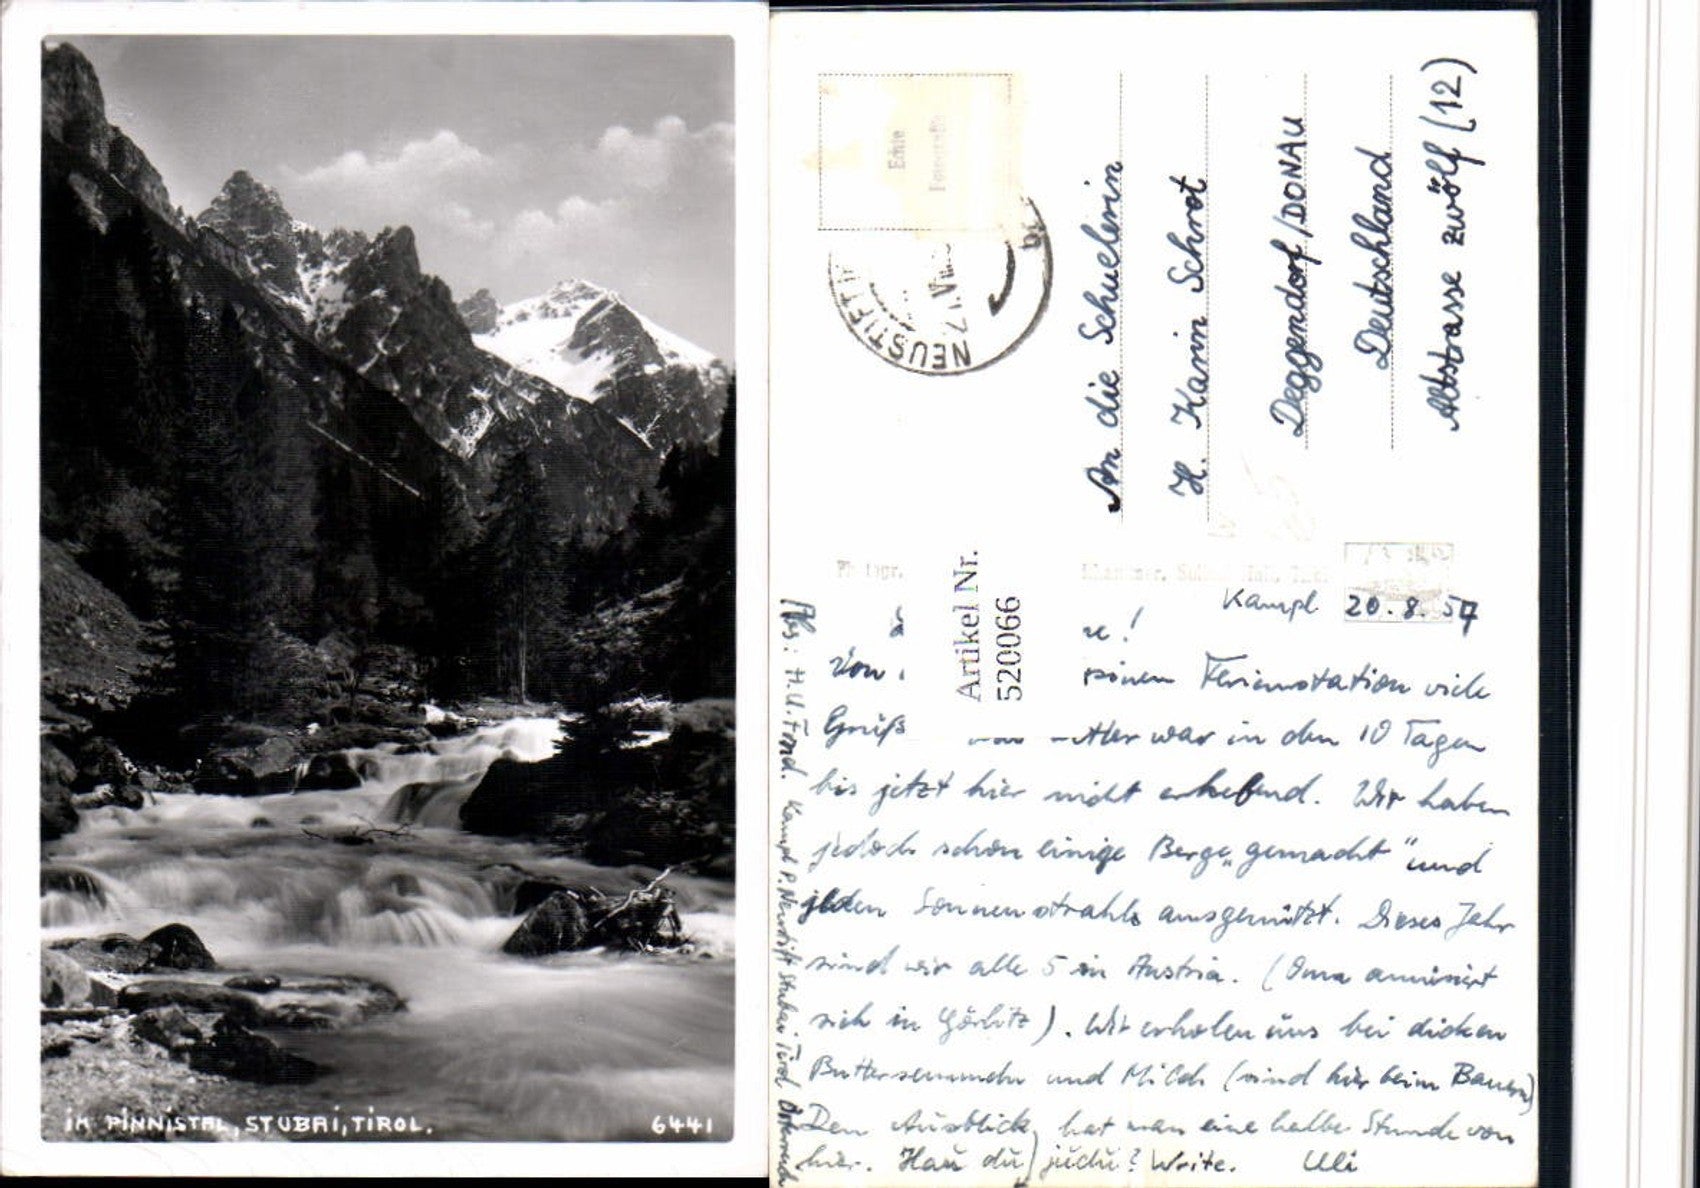 IM PINNISTAL, STUBAI, TIROL.
6441
Echte
NEUSTIFT
An die Schülerin
H. Karin Schrot
Deggendorf/DONAU
Deutschland
Altstrasse zwölf (12)
Artikel Nr.
520066
Kampl 20.8.57
Von Ferienstation viele
Grüß war in den 10 Tagen
bis jetzt hier nicht erhebend. Wir haben
jedoch schon einige Berge „gemacht" und
jeden Sonnenstrahl ausgenützt. Dieses Jahr
sind wir alle 5 in Austria. (Oma amüsiert
sich in Görlitz). Wir erholen uns bei dicken
Buttersemmeln und Milch (sind hier beim Bauern)
Den Ausblick hat man eine halbe Stunde von
hier. Hau du judu? Write. Uli
Abs: H.U. Kampl P. Neustift Stubai Tirol Österreich